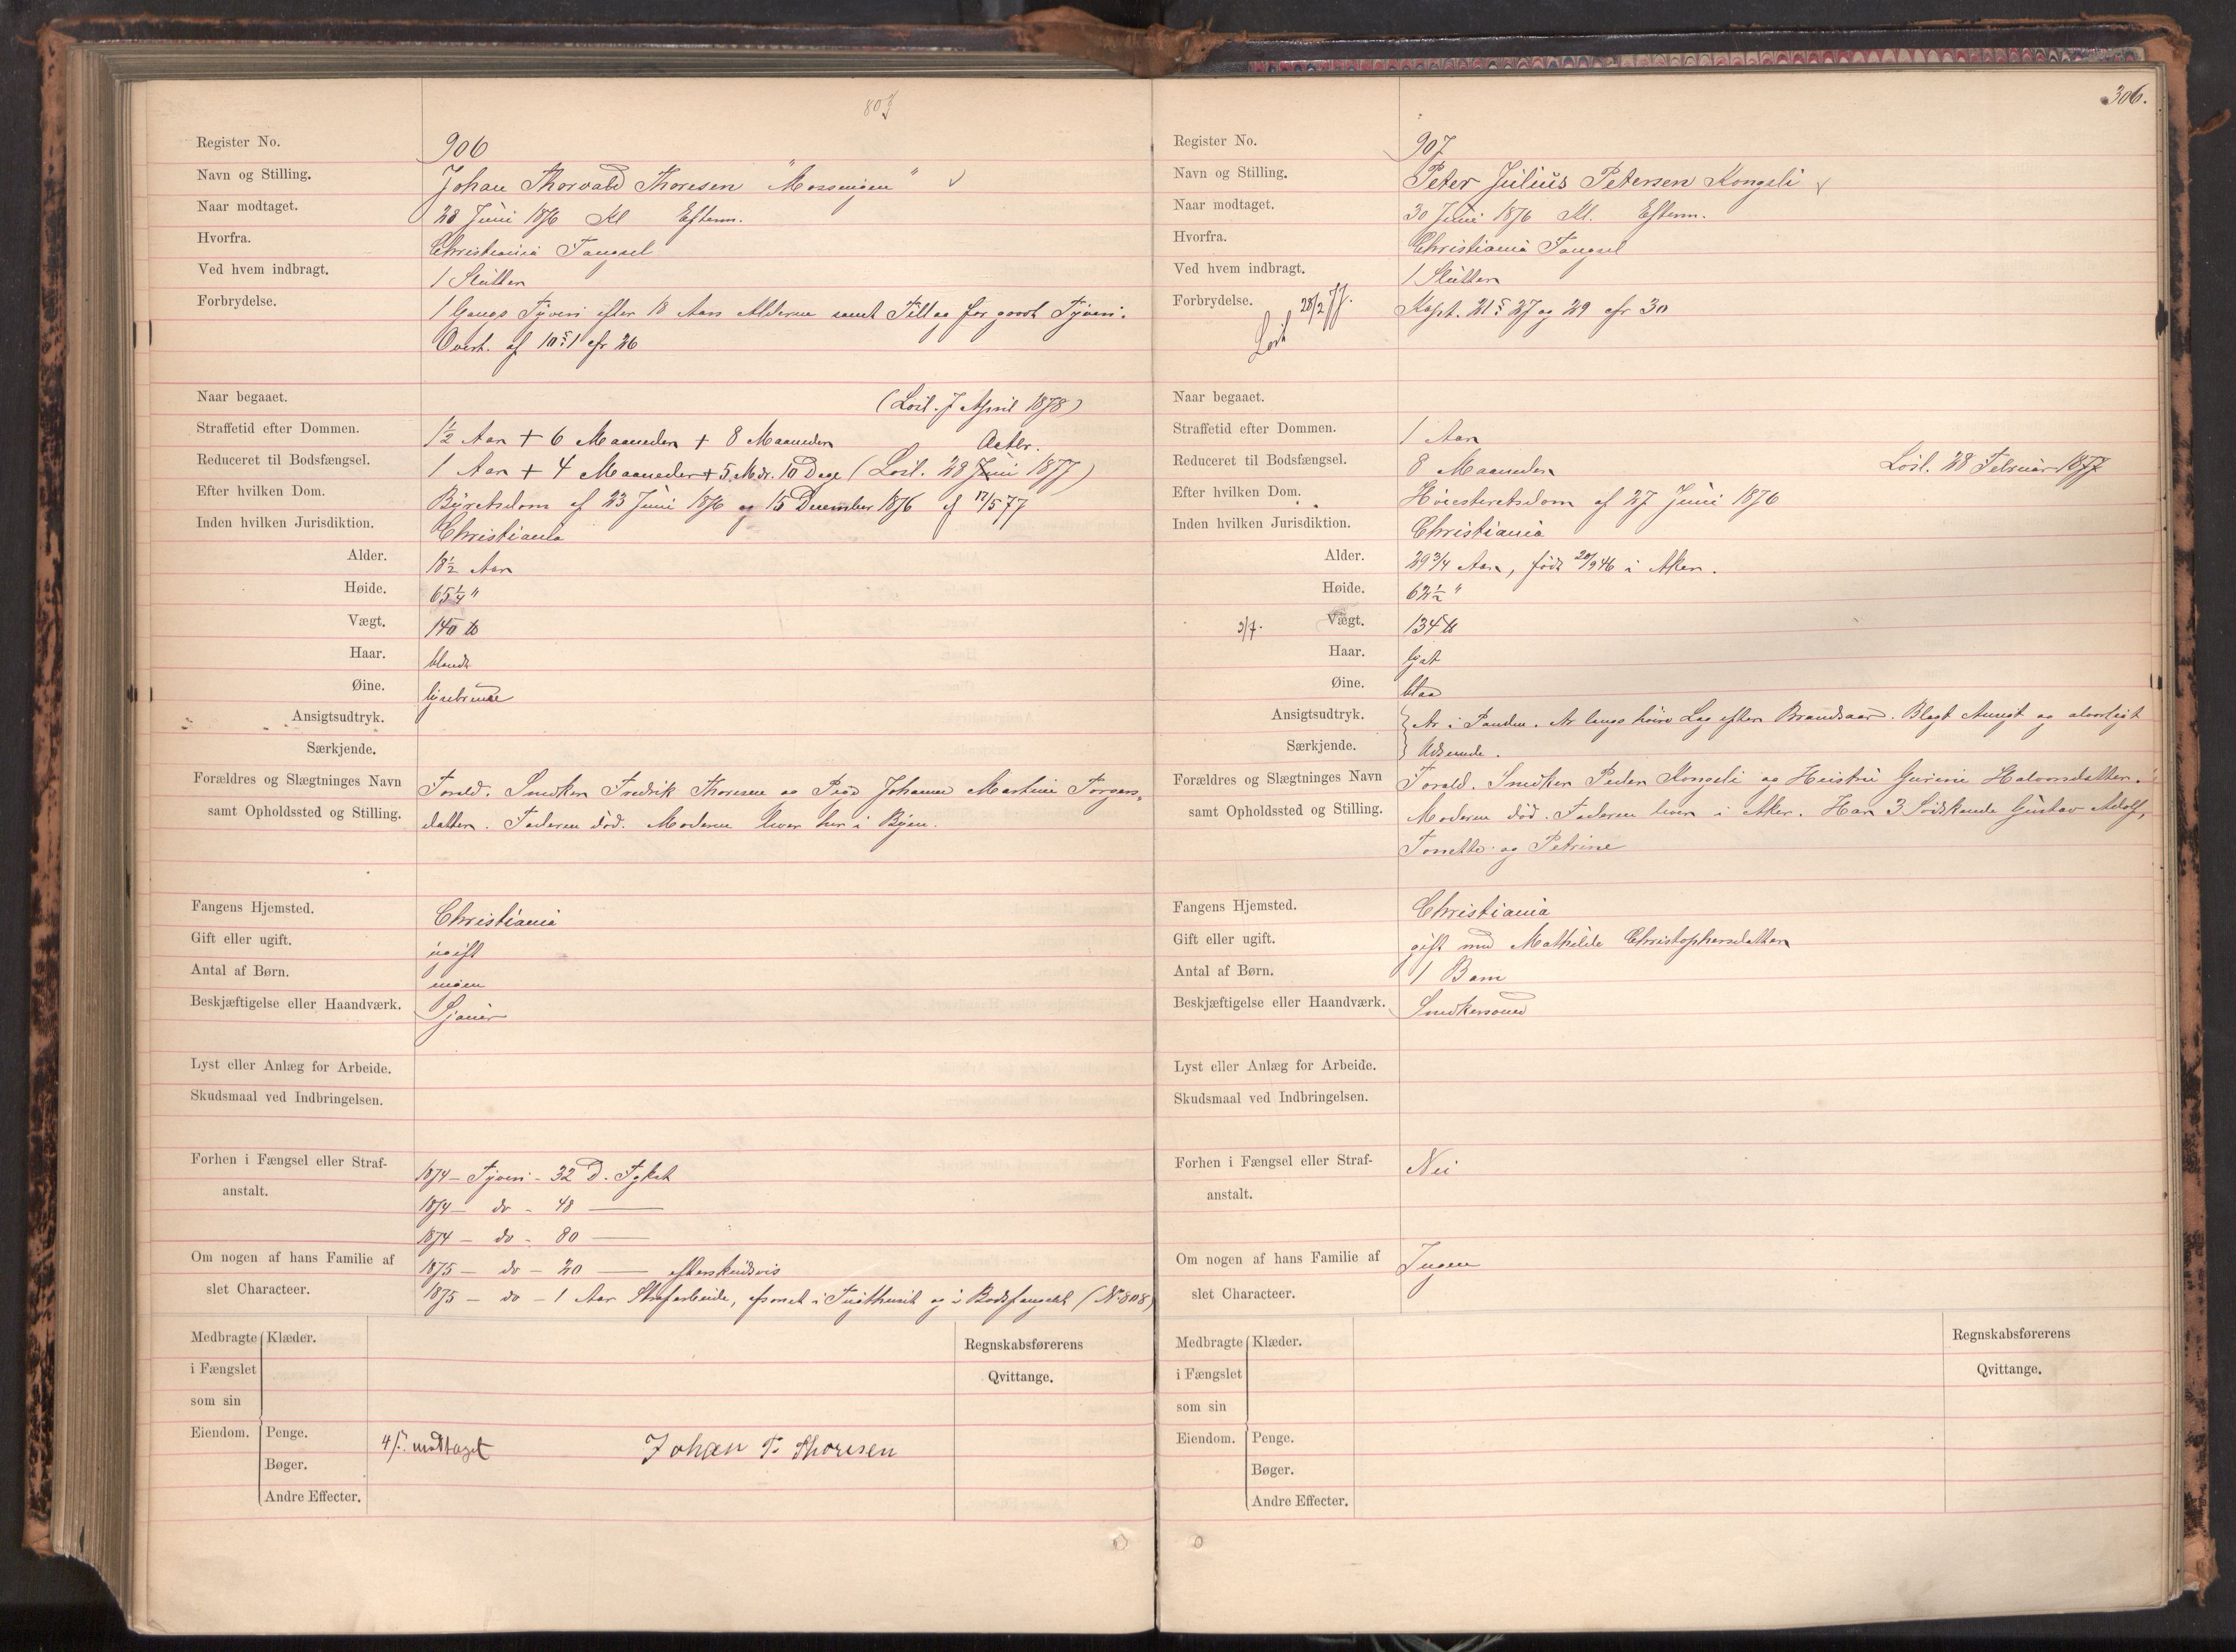 807
Register No. 906
Navn og Stilling. Johan Thorvald Thoresen "Mossingen" √
Naar modtaget. 28 Juni 1876 Kl Efterm.
Hvorfra. Christiania Fængsel
Ved hvem indbragt. 1 Slutter
Forbrydelse. 1 Gangs Tyveri efter 18 Aars Alderen samt Tillæg for grovt Tyveri.
Overt. af 10 § 1 cfr 26
Naar begaaet. (Løsl. 7 April 1878)
Straffetid efter Dommen. 1½ Aar + 6 Maaneder + 8 Maaneder Octbr.
Reduceret til Bodsfængsel. 1 Aar + 4 Maaneder + 5 Mdr. 10 Dage (Løsl. 28 Juni 1877)
Efter hvilken Dom. Byretsdom af 23 Juni 1876 og 15 December 1876 & 17/5 77
Inden hvilken Jurisdiktion. Christiania
Alder. 18½ Aar
Høide. 65¼"
Vægt. 140 ℔
Haar. blondt
Øine. lysebrune
Ansigtsudtryk.
Særkjende.
Forældres og Slægtninges Navn Foræld. Snedker Fredrik Thoresen og Pige Johanne Martine Torgers-
samt Opholdssted og Stilling. datter. Faderen død. Moderen lever her i Byen.
Fangens Hjemsted. Christiania
Gift eller ugift. ugift
Antal af Børn. ingen
Beskjæftigelse eller Haandværk. Sjauer
Lyst eller Anlæg for Arbeide.
Skudsmaal ved Indbringelsen.
Forhen i Fængsel eller Straf- 1874 – Tyveri – 32 D. Fgkst
anstalt. 1874 – do – 48 ——
1874 – do – 80 ——
Om nogen af hans Familie af 1875 – do – 20 —— efterskudsvis
slet Characteer. 1875 – do – 1 Aar Strafarbeide, afsonet i Tugthuset og i Bodsfængslet (No 808)
Medbragte Klæder. Regnskabsførerens
i Fængslet Qvittange.
som sin
Eiendom. Penge. 4/- modtaget Johan T. Thoresen
Bøger.
Andre Effecter.
306.
Register No. 907
Navn og Stilling. Peter Julius Petersen Kongeli √
Naar modtaget. 30 Juni 1876 Kl. Efterm.
Hvorfra. Christiania Fængsel
Ved hvem indbragt. 1 Slutter
Forbrydelse. Løsl 28/2 77. Kapt. 21 § 27 og 29 cfr 30
Naar begaaet.
Straffetid efter Dommen. 1 Aar
Reduceret til Bodsfængsel. 8 Maaneder Løsl. 28 Februar 1877
Efter hvilken Dom. Høiesteretsdom af 27 Juni 1876
Inden hvilken Jurisdiktion. Christiania
Alder. 29¾ Aar, født 20/9 46 i Aker.
Høide. 62½"
3/7. Vægt. 134 ℔
Haar. lyst
Øine. blaa
Ansigtsudtryk. Ar i Panden. Ar langs høire Læg efter Brandsaar. Blegt Ansigt og alvorligt
Særkjende. Udseende.
Forældres og Slægtninges Navn Foræld. Snedker Peder Kongeli og Heistrü Gurine Halvorsdatter.
samt Opholdssted og Stilling. Moderen død. Faderen lever i Aker. Har 3 Sødskende Gustav Adolf,
Tonette og Petrine
Fangens Hjemsted. Christiania
Gift eller ugift. gift med Mathilde Christophersdatter
Antal af Børn. 1 Barn
Beskjæftigelse eller Haandværk. Snedkersvend
Lyst eller Anlæg for Arbeide.
Skudsmaal ved Indbringelsen.
Forhen i Fængsel eller Straf- Nei
anstalt.
Om nogen af hans Familie af Ingen
slet Characteer.
Medbragte Klæder. Regnskabsførerens
i Fængslet Qvittange.
som sin
Eiendom. Penge.
Bøger.
Andre Effecter.